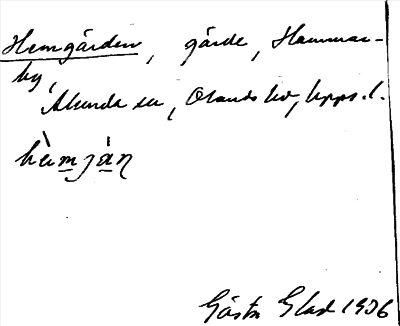 Hemgården, gärde, Hammar-
by,
Alunda sn, Olands hd, Upps. l.
Gösta Glad 1936